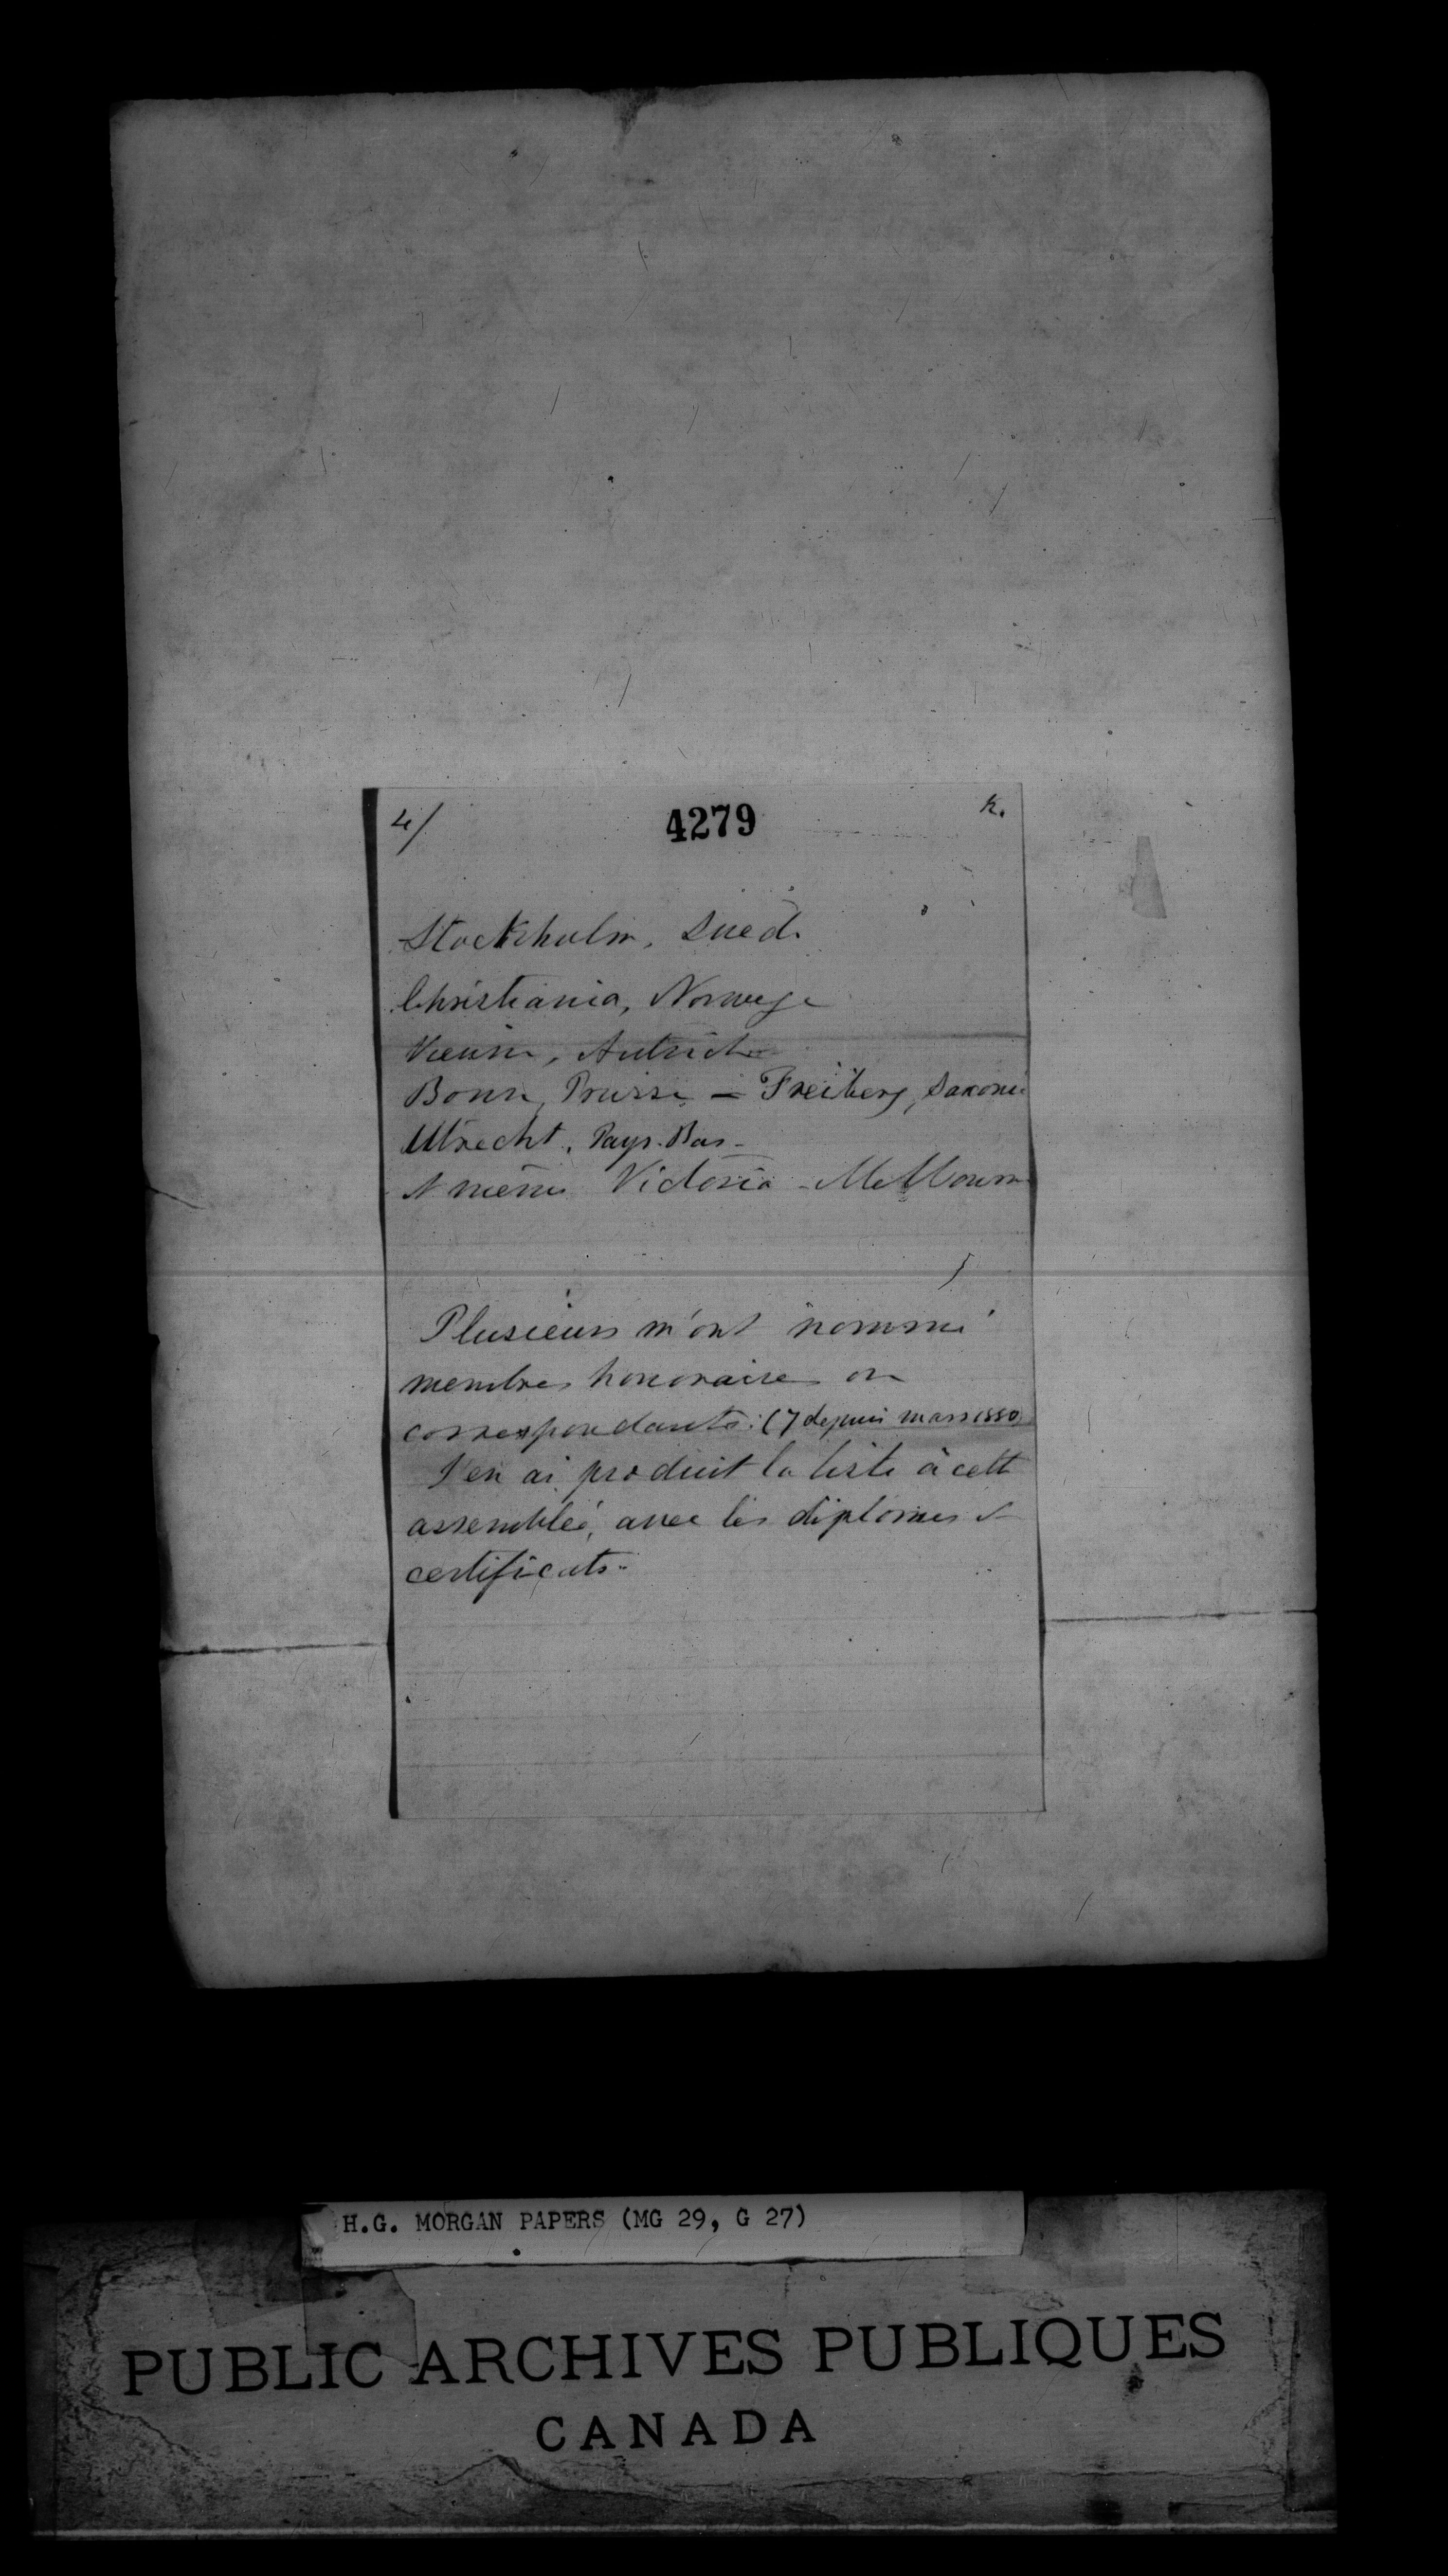 4/ 4279 k.
Stockholm, Suède
Christiania, Norwege
Vienne, Autriche
Bonn, Prusse — Freiberg, Saxonie
Utrecht, Pays-Bas -
et même Victoria - Melbourne
Plusieurs m'ont nommé
membres honoraires ou
correspondants: (7 depuis mars 1880)
J'en ai produit la liste à cette
assemblée, avec les diplomes et
certificats.
H.G. MORGAN PAPERS (MG 29, G 27)
PUBLIC ARCHIVES PUBLIQUES
CANADA